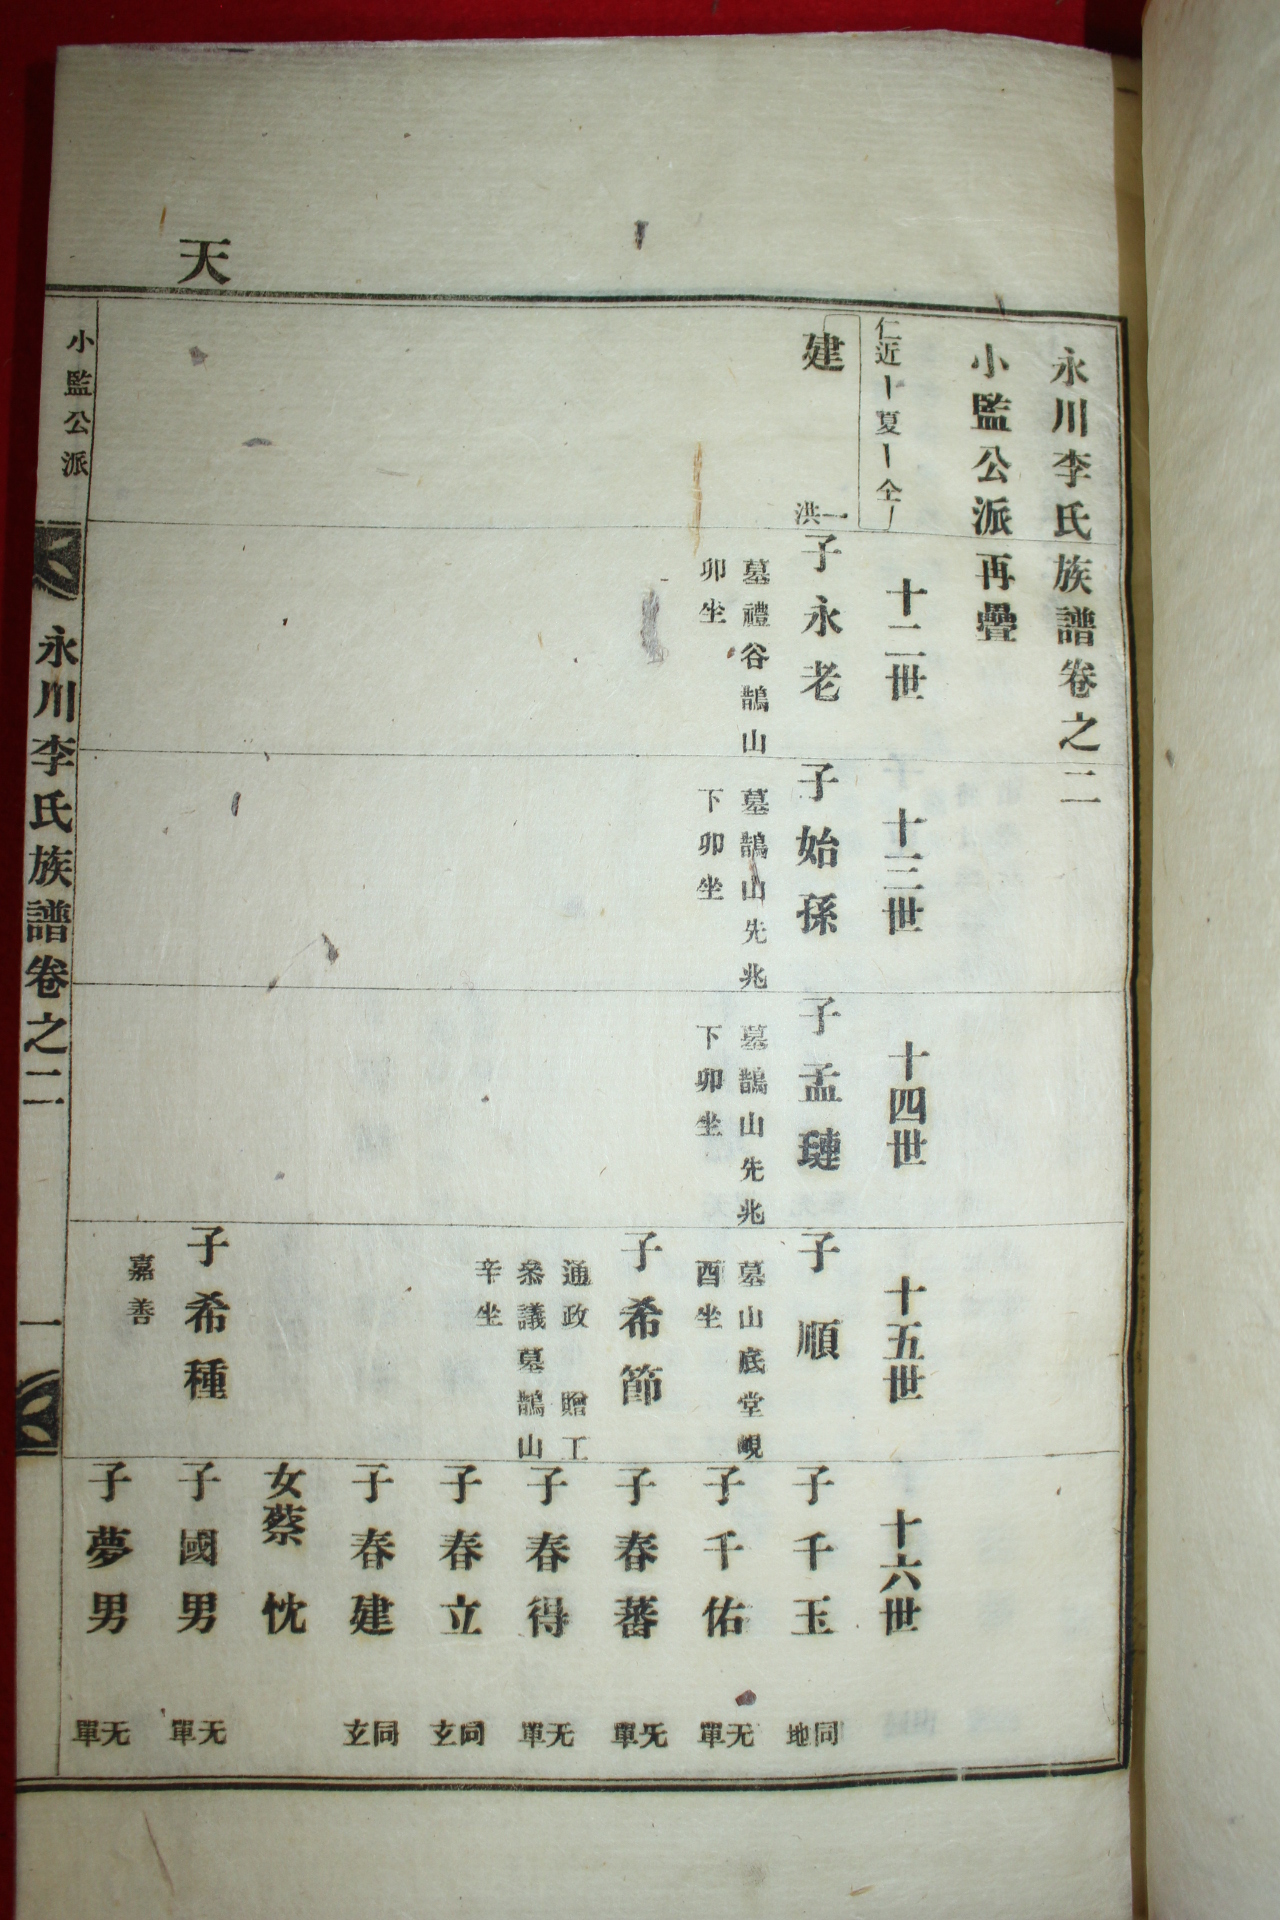 天
永川李氏族譜卷之二
小監公派再疊
仁近ー夏ー全ー
建
一洪
十二世
子永老
墓禮谷鵲山
卯坐
十三世
子始孫
墓鵲山先兆
下卯坐
十四世
子孟璉
墓鵲山先兆
下卯坐
十五世
子順
墓山底堂峴
酉坐
子希節
通政 贈工
叅議墓鵲山
辛坐
子希種
嘉善
十六世
子千玉
同地
子千佑
无單
子春蕃
无單
子春得
无單
子春立
同玄
子春建
同玄
女蔡忱
子國男
无單
子夢男
无單
小監公派
永川李氏族譜卷之二
一